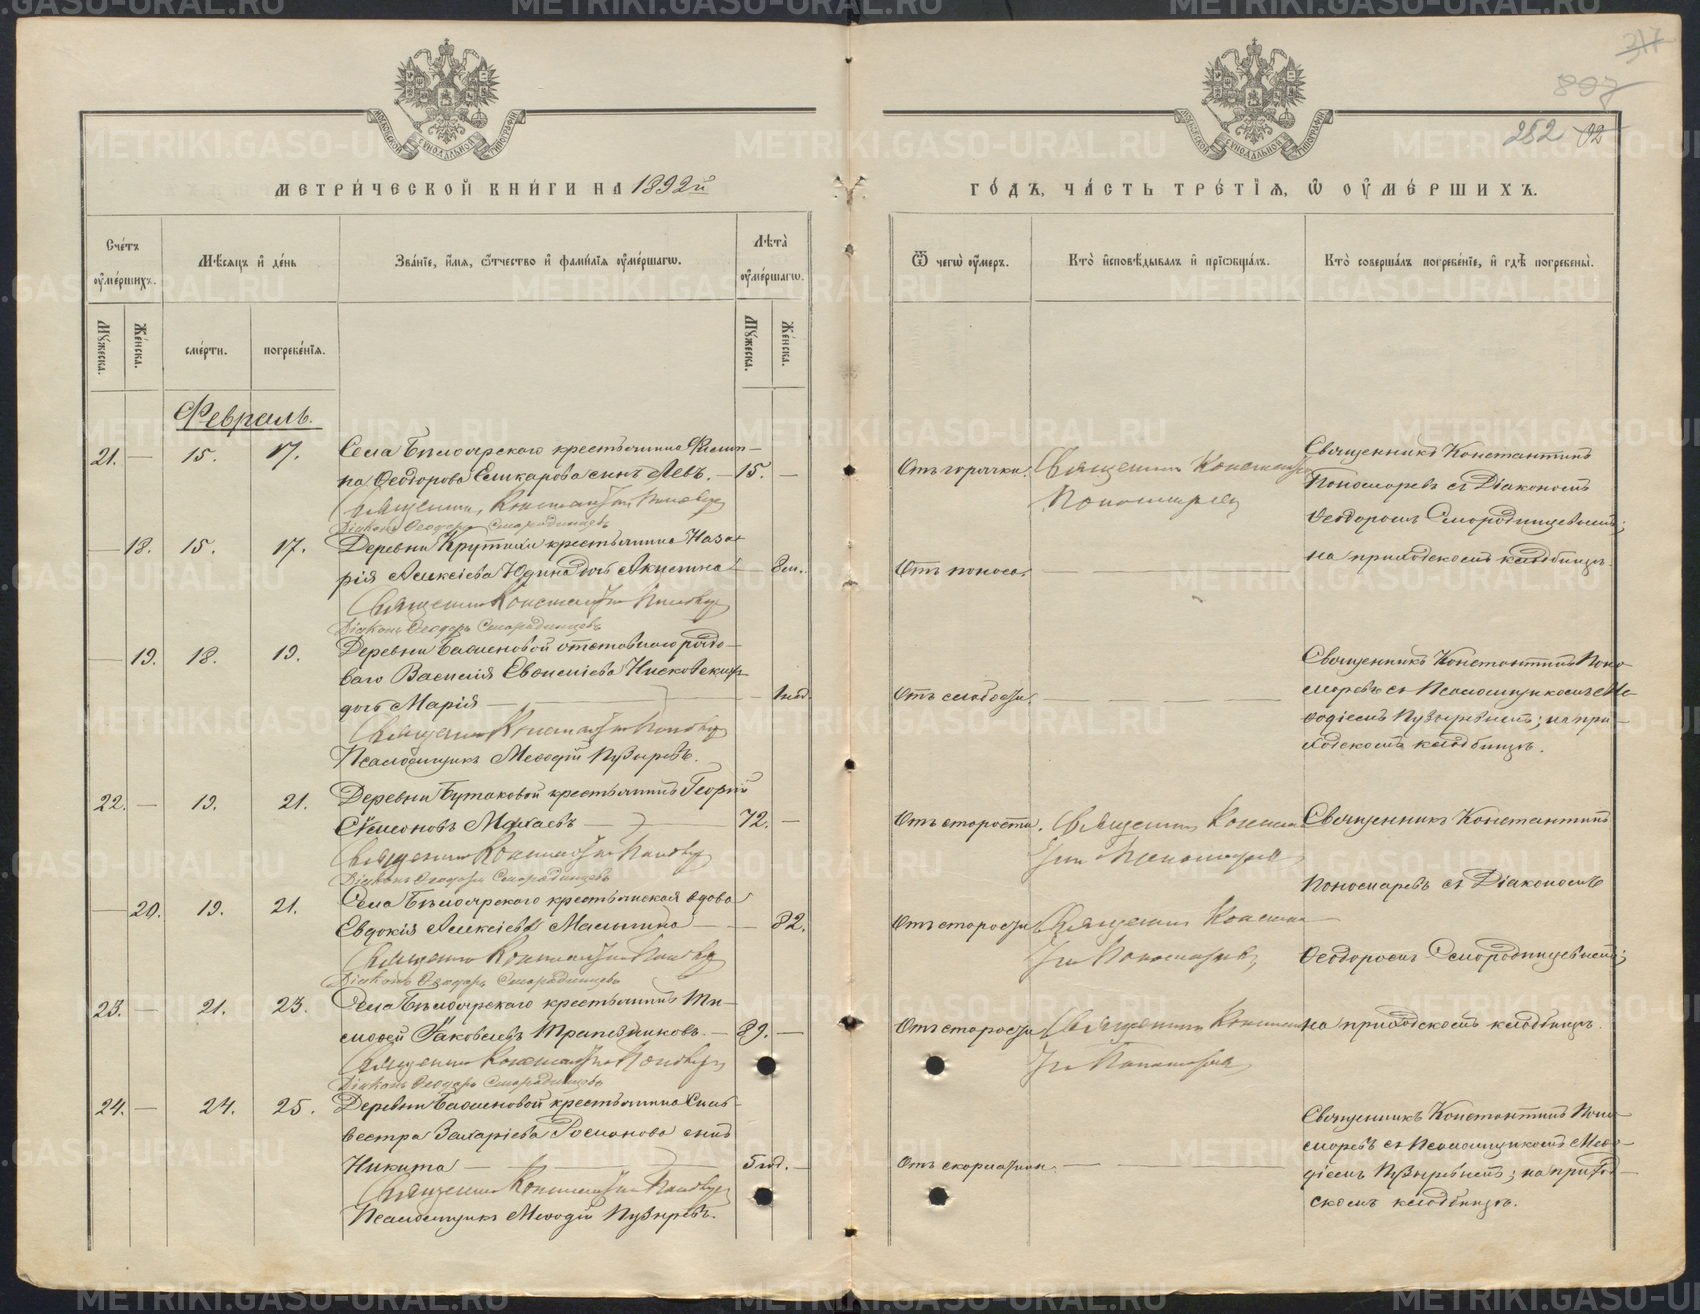 317
807
252 92
МОСКОВСКОЙ СѴНОДАЛЬНОЙ ТИПОГРАФІИ
МЕТРИ́ЧЕСКОЙ КНИ́ГИ НА 1892й
ГО́ДЪ, ЧА́СТЬ ТРЕ́ТІѦ, Ѿ ОУ҆МЕ́РШИХЪ.
Сче́тъ оу҆ме́ршихъ.
Мѣ́сяцъ и҆ де́нь
Зва́нїе, и҆́мя, ѻ҆́тчество и҆ фами́лїя оу҆ме́ршагѡ.
Лѣ́та оу҆ме́ршагѡ.
Ѿ чегѡ̀ оу҆́меръ.
Кто̀ и҆сповѣ́дывалъ и҆ прїѡбща́лъ.
Кто̀ соверша́лъ погребе́нїе, и҆ гдѣ̀ погребены̀.
Мꙋ́жеска.
Же́нска.
сме́рти.
погребе́нїя.
Мꙋ́жеска.
Же́нска.
Февраль.
21. — 15. 17. Села Бѣлоярскаго крестьянина Филип-
па Ѳеодорова Сенкарова сынъ Левъ. — 15. —
Священникъ Константинъ Пономаревъ
Діаконъ Ѳеодоръ Смородинцевъ
Отъ горячки. Священникъ Константинъ
Пономаревъ
Священникъ Константинъ
Пономаревъ съ Діакономъ
Ѳеодоромъ Смородинцевымъ;
на приходскомъ кладбищѣ.
— 18. 15. 17. Деревни Крутихи крестьянина Наза-
рія Алексіева Юдина дочь Акилина — 8 м.
Священникъ Константинъ Пономаревъ
Діаконъ Ѳеодоръ Смородинцевъ
Отъ поноса. — — —
— 19. 18. 19. Деревни Баженовой отставного рядо-
ваго Василія Евсигніева
дочь Марія — — 1 год.
Священникъ Константинъ Пономаревъ
Псаломщикъ Меѳодій Пузыревъ.
Отъ слабости. — — —
Священникъ Константинъ Поно-
маревъ съ Псаломщикомъ Ме-
ѳодіемъ Пузыревымъ; на при-
ходскомъ кладбищѣ.
22. — 19. 21. Деревни Бутаковой крестьянинъ Георгій
Симеоновъ Махаевъ — 72. —
Священникъ Константинъ Пономаревъ
Діаконъ Ѳеодоръ Смородинцевъ
Отъ старости. Священникъ Констан
тинъ Пономаревъ
Священникъ Константинъ
Пономаревъ съ Діакономъ
Ѳеодоромъ Смородинцевымъ;
на приходскомъ кладбищѣ.
— 20. 19. 21. Села Бѣлоярскаго крестьянская вдова
Евдокія Алексіева Малыгина — — 82.
Священникъ Константинъ Пономаревъ
Діаконъ Ѳеодоръ Смородинцевъ
Отъ старости Священникъ Констан
тинъ Пономаревъ
23. — 21. 23. Села Бѣлоярскаго крестьянинъ Ти-
моѳей Іаковлевъ Трапезниковъ. — 89. —
Священникъ Константинъ Пономаревъ
Діаконъ Ѳеодоръ Смородинцевъ
Отъ старости Священникъ Констан
тинъ Пономаревъ
24. — 24. 25. Деревни Баженовой крестьянина Силь-
вестра Захаріева Росманова сынъ
Никита — — 5 год. —
Священникъ Константинъ Пономаревъ
Псаломщикъ Меѳодій Пузыревъ.
Отъ скарлатин. — — —
Священникъ Константинъ Поно-
маревъ съ Псаломщикомъ Меѳо-
діемъ Пузыревымъ; на приход-
скомъ кладбищѣ.
METRIKI.GASO-URAL.RU